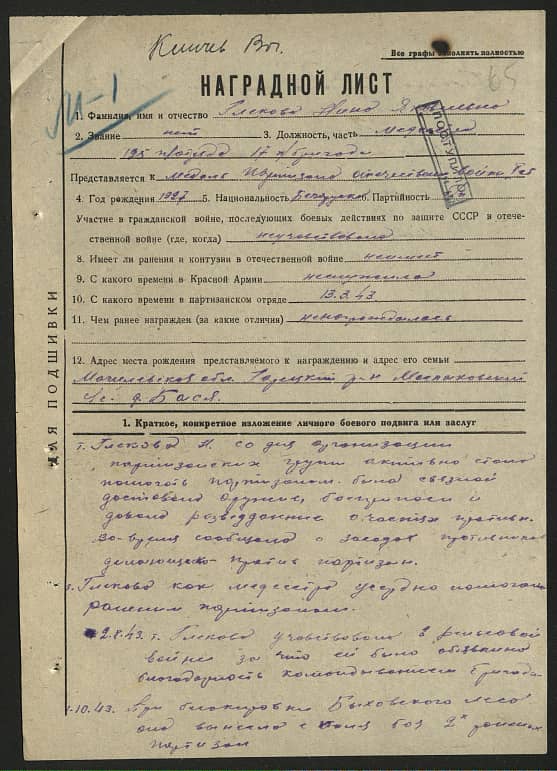 Все графы заполнять полностью
65
М-1
НАГРАДНОЙ ЛИСТ
1. Фамилия, имя и отчество Глекова Нина
2. Звание нет 3. Должность, часть Медсестра
ПОСТУПИЛО
Представляется к Медаль Партизана отечествен войны
4. Год рождения 1927 5. Национальность Партийность
Участие в гражданской войне, последующих боевых действиях по защите СССР в отече-
ственной войне (где, когда) неучаствовала
8. Имеет ли ранения и контузии в отечественной войне неимеет
9. С какого времени в Красной Армии неслужила
10. С какого времени в партизанском отряде 13.3.43
11. Чем ранее награжден (за какие отличия) ненаграждалась
12. Адрес места рождения представляемого к награждению и адрес его семьи
Могилевская обл. Горецкий р-н Маслаковский
с/с д. Бася.
ДЛЯ ПОДШИВКИ
1. Краткое, конкретное изложение личного боевого подвига или заслуг
т. Глекова Н. со дня организации
партизанских групп активно стала
помогать партизанам. была связной
доставала оружие, боеприпасы и
давала разведданные о частях противн.
Во-время сообщала о засадах противника
против партизан.
Глекова как медсестра усердно помогала
раненым партизанам.
2.8.43 г. Глекова участвовала в рельсовой
войне за что ей была объявлена
благодарность командыванием бригады
10.43. При блокировки Быховского леса
она вынесла с поля боя 2х раненых
партизан